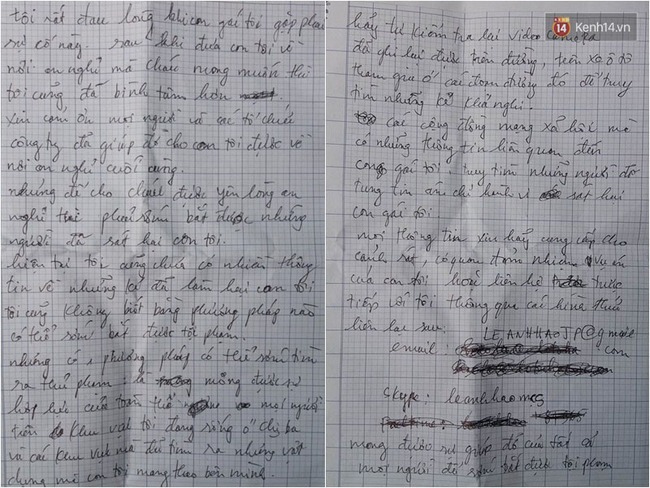 tôi rất đau lòng khi con gái tôi gặp phải
sự cố này. sau khi đưa con tôi về
nơi an nghỉ mà cháu mong muốn thì
tôi cũng đã bình tâm hơn
xin cảm ơn mọi người và các tổ chức
công ty đã giúp đỡ cho con tôi được về
nơi an nghỉ cuối cùng.
nhưng để cho cháu được yên lòng an
nghỉ thì phải sớm bắt được những
người đã sát hại con tôi.
hiện tại tôi cũng chưa có nhiều thông
tin về những kẻ đã làm hại con tôi
tôi cũng không biết bằng phương pháp nào
có thể sớm bắt được tội phạm.
nhưng có 1 phương pháp có thể sớm tìm
ra thủ phạm: là mong được sự
hợp lực của toàn thể mọi người
trên khu vực tôi đang sống ở chi ba
và các khu vực mà để tìm ra những vật
dụng mà con tôi mang theo bên mình.
hãy tự kiểm tra lại video camera
đã ghi lại được trên đường, trên xe ô tô
tham qua ở các đoạn đường đó để truy
tìm những kẻ khả nghi.
các cộng đồng mạng xã hội mà
có những thông tin liên quan đến
con gái tôi. truy tìm những người đó
tung tin ám chỉ hành vi sát hại
con gái tôi
mọi thông tin xin hãy cung cấp cho
cảnh sát, cơ quan đảm nhiệm vụ án
của con tôi hoặc liên hệ trực
tiếp với tôi thông qua các hình thức
liên lạc sau: LEANHHAOJP@gmail
email: com
skype: leanhhaomcs
mong được sự giúp đỡ của tất cả
mọi người để sớm bắt được tội phạm
14 Kenh14.vn